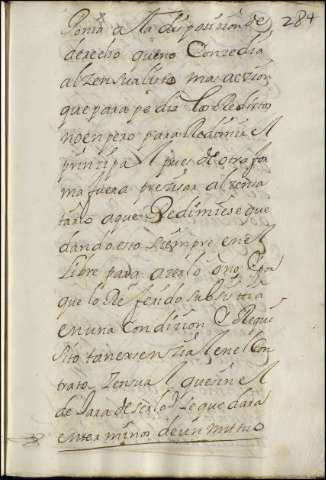 284
Ponia a la disposision de
derecho que no Consedia
al Zensualista mas aczion
que para pedir los Reditos
no en pero para Redimir el
prinsipal pues de otra for
ma fuera presisar al zensa
tario a que Redimiese que
dando esto siempre en el
libre para aserlo o no Y pa
que lo Referido subsistia
en una Condizion Y Requi
sito tan esensial en el Con
trato Zensual que sin el
dejara de serlo Y se quedara
en terminos de un mutuo